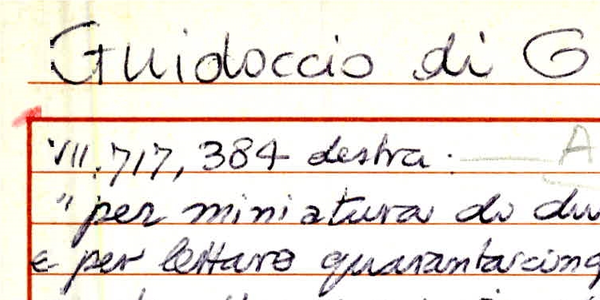 Guidoccio di G
VII.717, 384 destra. A
" per miniatura di du
e per lettare quarantacinq